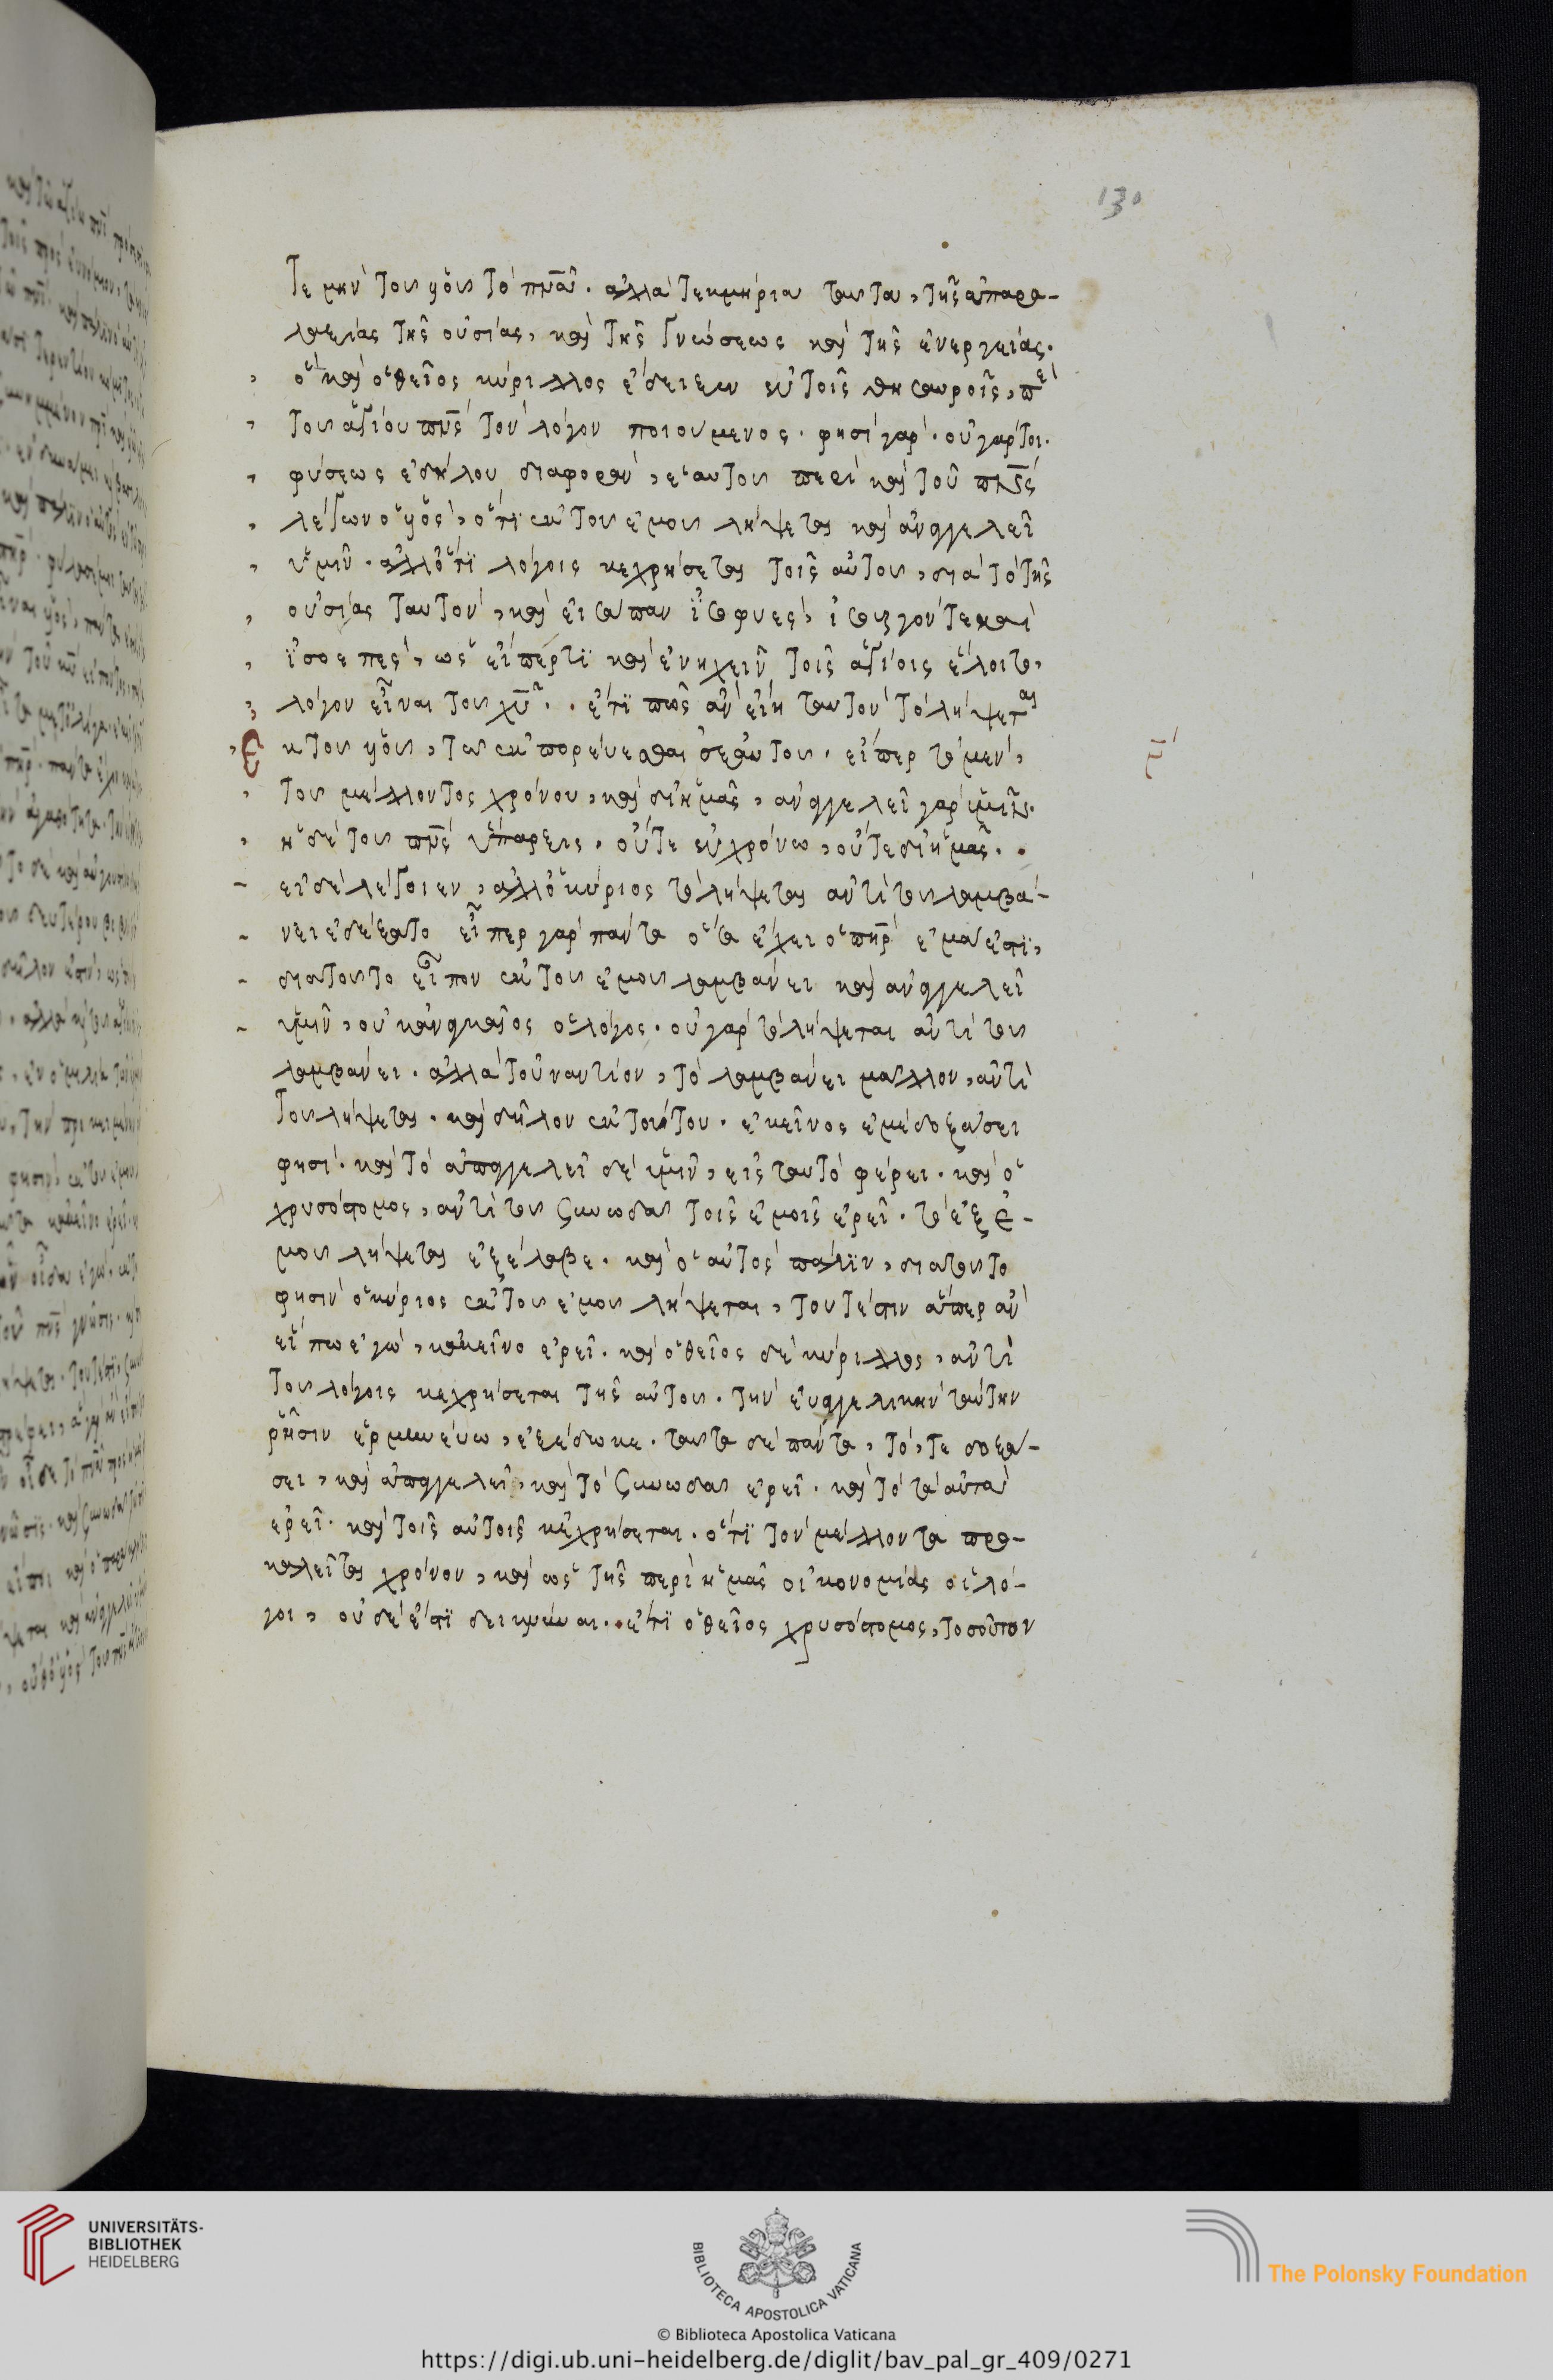 130
τε μὴν τοῦ υἱοῦ τὸ πνᾶ. ἀλλὰ τεκμήρια ταῦτα, τῆς ἀπαρα-
λαξίας τῆς οὐσίας, καὶ τῆς γνώσεως καὶ τῆς ἐνεργείας.
ὃ καὶ ὁ θεῖος κύριλλος ἔδειξεν ἐν τοῖς θησαυροῖς, περὶ
τοῦ ἁγίου πνς τὸν λόγον ποιούμενος. φησὶ γάρ. οὐ γάρ τοι
φύσεως ἐδήλου διαφορὰν, ἑαυτοῦ περὶ καὶ τοῦ πνς
λέγων ὁ υἱὸς, ὅτι ἐκ τοῦ ἐμοῦ λήψεται καὶ ἀναγγελεῖ
ὑμῖν. ἀλλ' ὅτι λόγοις κεχρήσεται τοῖς αὐτοῦ, διὰ τὸ τῆς
οὐσίας ταυτὸν, καὶ εἰσάπαν ἰσοφυὲς, ἰσουργόν τε καὶ
ἰσοεπὲς, ὡς εἴπερ τι καὶ ἐνηχεῖν τοῖς ἁγίοις ἕλοιτο,
λόγον εἶναι τοῦ χυ. ἔτι πῶς ἂν εἴη ταυτὸν τὸ λήψεται
ἐκ τοῦ υἱοῦ, τῶ ἐκπορεύεσθαι δι' αὐτοῦ. εἴπερ τὸ μὲν,
τοῦ μέλλοντος χρόνου, καὶ δι' ἡμᾶς, ἀναγγελεῖ γὰρ ὑμῖν.
ἡ δὲ τοῦ πνς ὕπαρξις. οὔτε ἐν χρόνω, οὔτε δι' ἡμᾶς.
εἰ δὲ λέγοιεν, ἀλλ' ὁ κύριος τὸ λήψεται ἀντὶ τοῦ λαμβά-
νει ἐδέξατο εἴπερ γὰρ πάντα ὅσα ἔχει ὁ πηρ ἐμά ἐστι,
διὰ τοῦτο εἶπον ἐκ τοῦ ἐμοῦ λαμβάνει καὶ ἀναγγελεῖ
ὑμῖν, οὐκ ἀναγκαῖος ὁ λόγος. οὐ γὰρ τὸ λήψεται ἀντὶ τοῦ
λαμβάνει. ἀλλὰ τοὐναντίον, τὸ λαμβάνει μᾶλλον, ἀντὶ
τοῦ λήψεται. καὶ δῆλον ἐκ τούτου. ἐκεῖνος ἐμὲ δοξάσει
φησί. καὶ τὸ ἀπαγγελεῖ δὲ ὑμῖν, εἰς ταυτὸ φέρει. καὶ ὁ
χρυσόστομος, ἀντὶ τοῦ συνωδὰ τοῖς ἐμοῖς ἐρεῖ. τὸ ἐξ ἐ-
μοῦ λήψεται ἐξέλαβε. καὶ ὁ αὐτὸς πάλιν, διὰ τοῦτο
φησὶν ὁ κύριος ἐκ τοῦ ἐμοῦ λήψεται, τουτέστιν ἅπερ ἂν
εἴπω ἐγὼ, κἀκεῖνο ἐρεῖ. καὶ ὁ θεῖος δὲ κύριλλος, ἀντὶ
τοῦ λόγοις κεχρήσεται τῆς αὐτοῦ. τὴν εὐαγγελικὴν ταύτην
ῥῆσιν ἑρμηνεύω, ἐξέδωκε. ταῦτα δὲ πάντα, τό, τε δοξά-
σει, καὶ ἀπαγγελεῖ, καὶ τὸ συνωδὰ ἐρεῖ. καὶ τὸ τὰ αὐτὰ
ἐρεῖ. καὶ τοῖς αὐτοῖς κεχρήσεται. ὅτι τὸν μέλλοντα προ-
καλεῖται χρόνον, καὶ ὡς τῆς περὶ ἡμᾶς οἰκονομίας οἱ λό-
γοι, οὐδέ ἐστι δεικνύναι. ἔτι ὁ θεῖος χρυσόστομος, τοσοῦτον
UNIVERSITÄTS-
BIBLIOTHEK
HEIDELBERG
BIBLIOTECA APOSTOLICA VATICANA
The Polonsky Foundation
© Biblioteca Apostolica Vaticana
https://digi.ub.uni-heidelberg.de/diglit/bav_pal_gr_409/0271